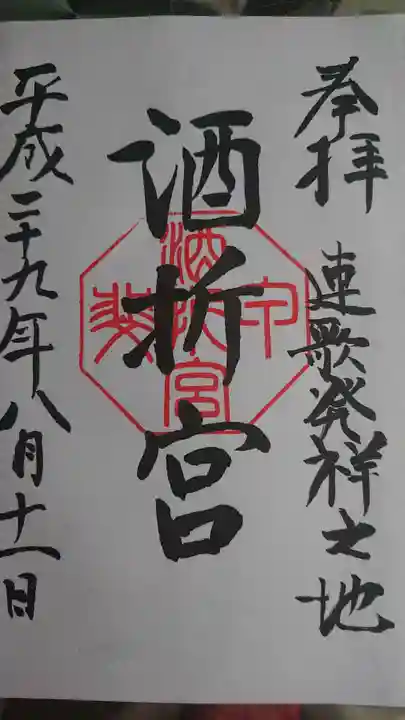 奉拝 連歌発祥之地
酒折宮
平成二十九年八月十一日
酒折宮
甲斐